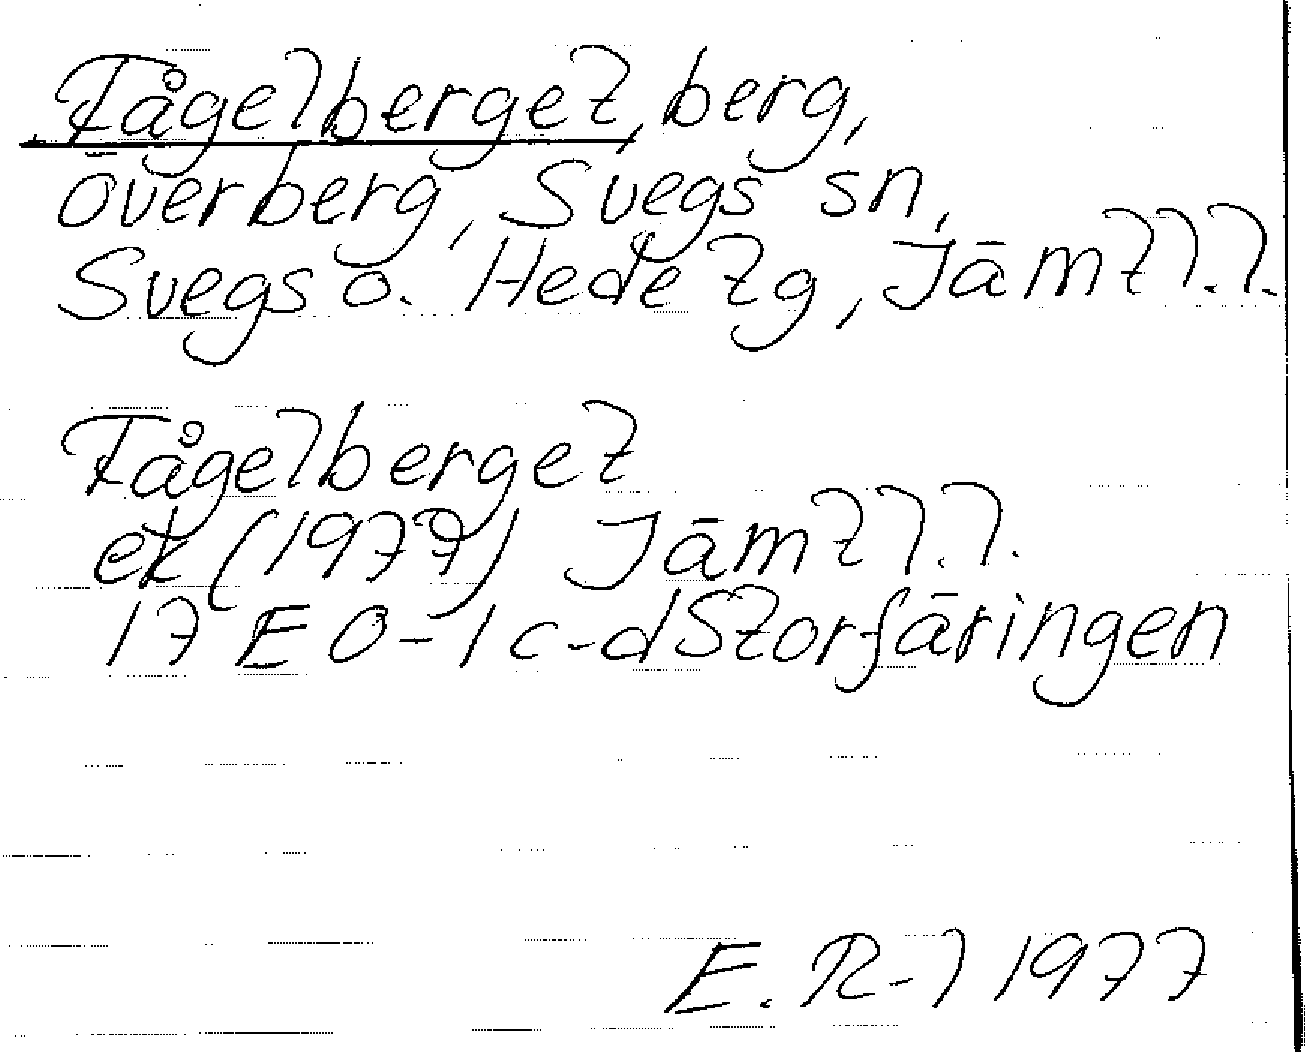 Fågelberget, berg,
Överberg, Svegs sn,
Svegs o. Hede tg, Jämtl.l.
Fågelberget
ek (1977) Jämtl.l.
17 E 0-1 c-d Storfäringen
E. R-l 1977